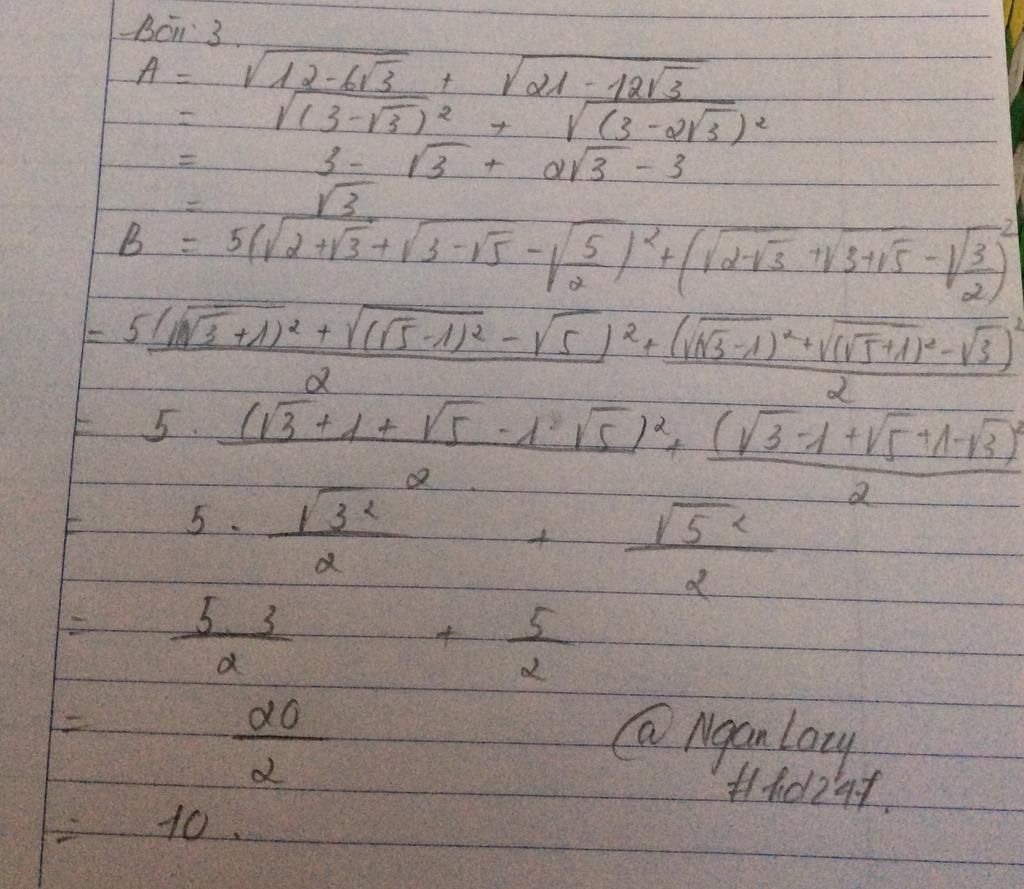 Bài 3.
A = √(12-6√3) + √(21-12√3)
= √((3-√3)²) + √((3-2√3)²)
= 3 - √3 + 2√3 - 3
= √3
B = 5(√(2+√3) + √(3-√5) - √(5/2))² + (√(2-√3) + √(3+√5) - √(3/2))²
= 5(√((√3+1)²) + √((√5-1)²) - √5)²/2 + (√((√3-1)²) + √((√5+1)²) - √3)²/2
= 5 . (√3 + 1 + √5 - 1 - √5)²/2 + (√3 - 1 + √5 + 1 - √3)²/2
= 5 . √3²/2 + √5²/2
= 5.3/2 + 5/2
= 20/2
@NganLazy
= 10.